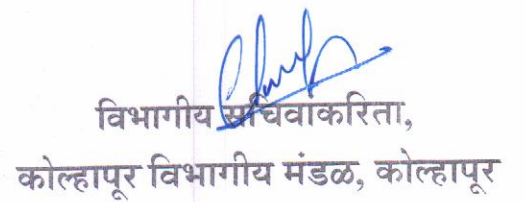 विभागीय सचिवांकरिता,
कोल्हापूर विभागीय मंडळ, कोल्हापूर